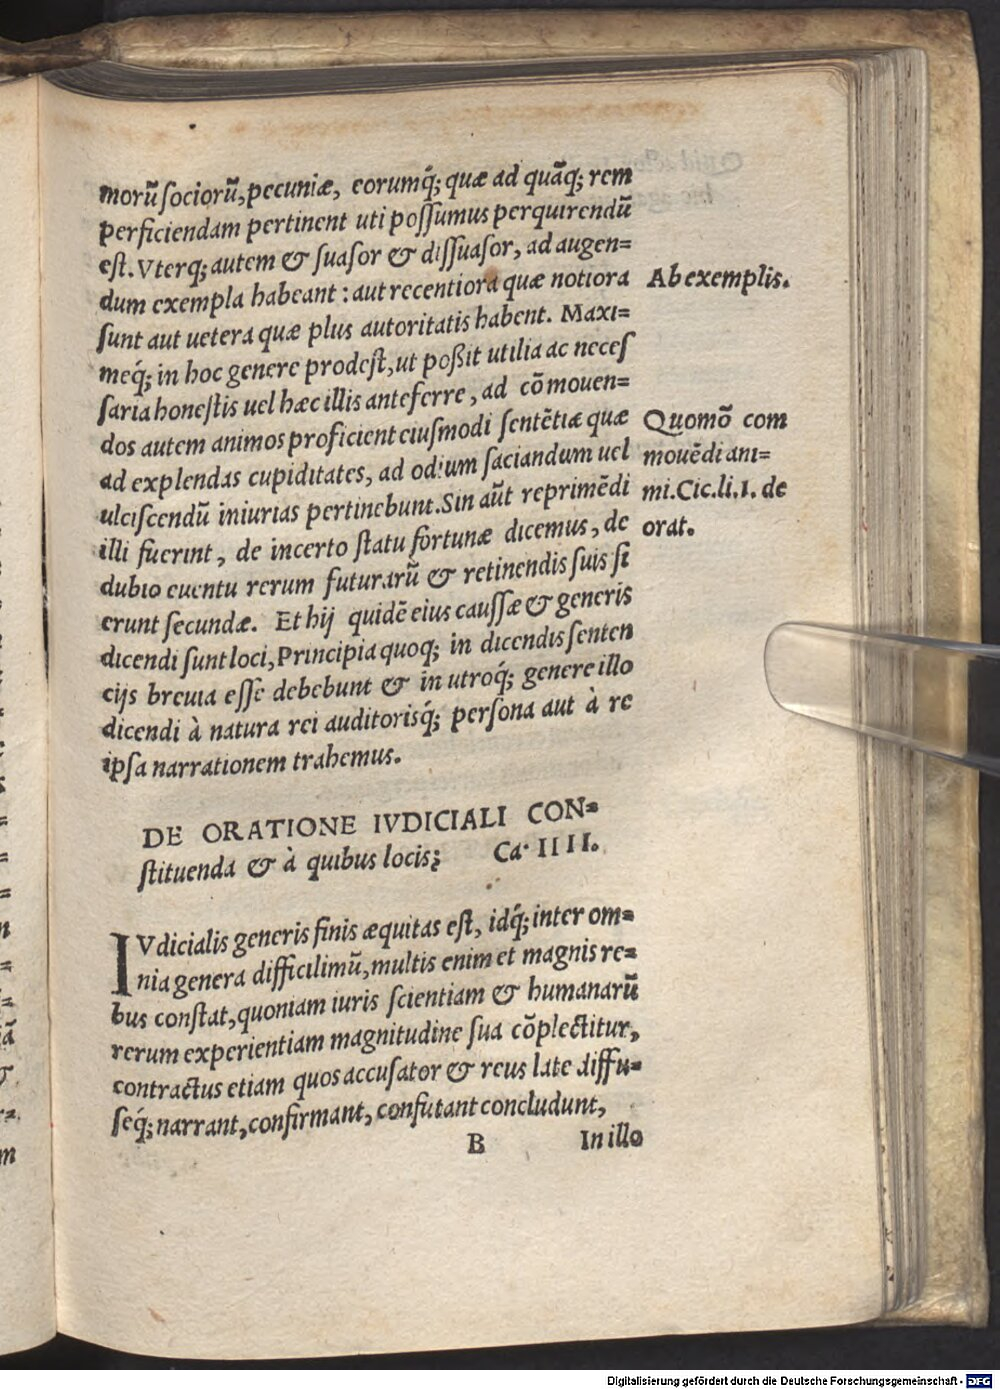 morū sociorū, pecuniæ, eorumq́; quæ ad quāq; rem
perficiendam pertinent uti possumus perquirendū
est. Vterq; autem & suasor & dissuasor, ad augen=
dum exempla habeant: aut recentiora quæ notiora
sunt aut uetera quæ plus autoritatis habent. Maxi=
meq́; in hoc genere prodest, ut poßit utilia ac neces
saria honestis uel hæc illis anteferre, ad cōmouen=
dos autem animos proficient eiusmodi sentētiæ quæ
ad explendas cupiditates, ad odium saciandum uel
ulciscendū iniurias pertinebunt. Sin aūt reprimēdi
illi fuerint, de incerto statu fortunæ dicemus, de
dubio euentu rerum futurarū & retinendis suis si
erunt secundæ. Et hij quidē eius caussæ & generis
dicendi sunt loci, Principia quoq; in dicendis senten
cijs breuia esse debebunt & in utroq́; genere illo
dicendi à natura rei auditorisq́; persona aut à re
ipsa narrationem trahemus.
Ab exemplis.
Quomō com
mouēdi ani=
mi. Cic. li. 1. de
orat.
DE ORATIONE IVDICIALI CON=
stituenda & à quibus locis; Ca. IIII.
IVdicialis generis finis æquitas est, idq́; inter om=
nia genera difficilimū, multis enim et magnis re=
bus constat, quoniam iuris scientiam & humanarū
rerum experientiam magnitudine sua cōplectitur,
contractus etiam quos accusator & reus late diffu=
seq́; narrant, confirmant, confutant concludunt,
B In illo
Digitalisierung gefördert durch die Deutsche Forschungsgemeinschaft - DFG